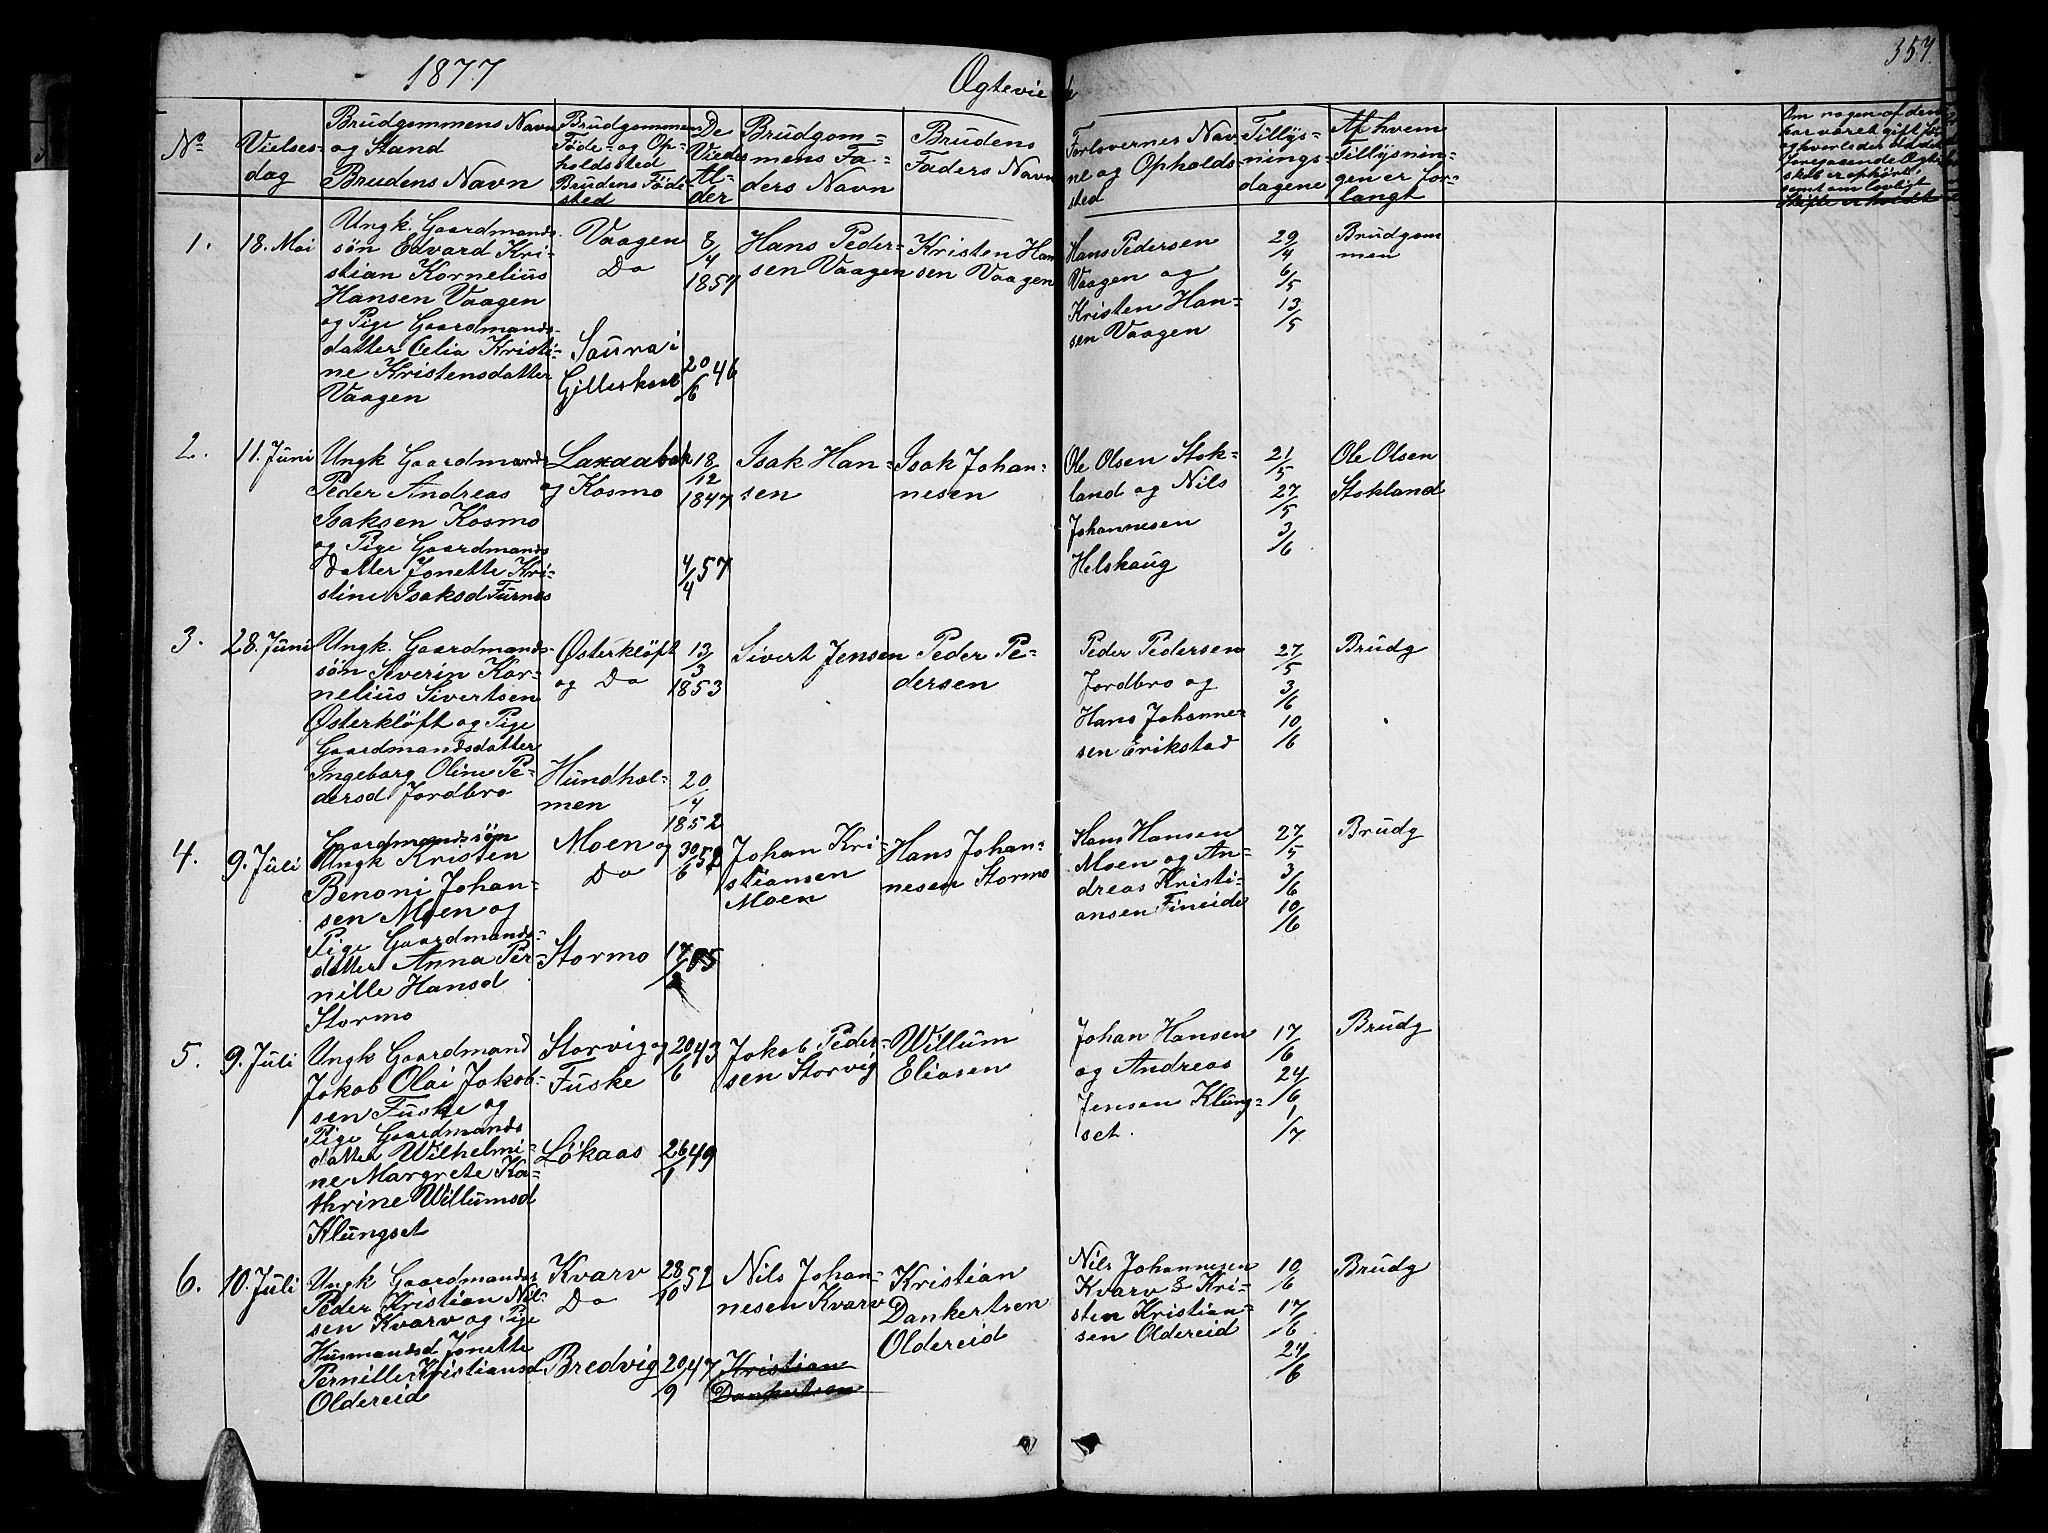 1877
Ægtevie
357.
No
Vielses-
dag
Brudgommens Navn
og Stand
Brudens Navn
Brudgommens
Føde- og Op-
holdssted
Brudens Føde-
sted
De
Viedes
Al-
der
Brudgom-
mens Fa-
ders Navn
Brudens
Faders Navn
Forlovernes Nav-
ne og Opholds-
sted
Tillys-
nings-
dagene
Af hvem
Tillysnin-
gen er for-
langt
Om nogen af dem
har været gift før
og hvorledes
foregaaende Ægte
skab er ophørt,
samt om lovligt
Skifte er holdt
1.
18. Mai
Ungk. Gaardmands-
søn Edvard Kri-
stian Kornelius
Hansen Vaagen
og Pige Gaardmands-
datter Celia Kristi-
ne Kristensdatter
Vaagen
Vaagen
Do
Saura i
Gilleskaal
8/4
1851
20/6 46
Hans Peder-
sen Vaagen
Kristen Han
sen Vaagen
Hans Pedersen
Vaagen og
Kristen Han-
sen Vaagen
29/4
6/5
13/5
Brudgom
men
2.
11. Juni
Ungk Gaardmands
Peder Andreas
Isaksen Kosmo
og Pige Gaardmands
datter Jonette Kri-
stine Isaksd Furnes
Laxaabak
og Kosmo
18/12
1847
4/4 57
Isak Han-
sen
Isak Johan-
nesen
Ole Olsen Stok-
land og Nils
Johannesen
Helskaug
21/5
27/5
3/6
Ole Olsen
Stokland
3.
28. Juni
Ungk. Gaardmands-
søn Severin Kor-
nelius Sivertsen
Østerkløft og Pige
Gaardmandsdatter
Ingeborg Oline Pe-
dersd Jordbro
Østerkløft
og Do
Hundhol-
men
13/3
1853
20/4
1852
Sivert Jensen
Peder Pe-
dersen
Peder Pedersen
Jordbro og
Hans Johanne-
sen Erikstad
27/5
3/6
10/6
Brudg
4.
9. Juli
Gaardmandssøn
Ungk Kristen
Benoni Johan-
sen Moen og
Pige Gaardmands-
datter Anna Per-
nille Hansd
Stormo
Moen og
Do
Stormo
30/6 52
Johan Kri-
stiansen
Moen
Hans Johan-
nesen Stormo
Hans Hansen
Moen og An-
dreas Kristi-
ansen Fineide
27/5
3/6
10/6
Brudg
5.
9. Juli
Ungk Gaardmand
Jakob Olai Jakob-
sen Fuske og
Pige Gaardmands
datter Wilhelmi-
ne Margrete Ka-
thrine Willumsd
Klungset
Storvig og
Fuske
Løkaas
20/6 43
26/1 49
Jokob Peder-
sen Storvig
Willum
Eliasen
Johan Hansen
og Andreas
Jensen Klung-
set.
17/6
24/6
1/7
Brudg
6.
10. Juli
Ungk Gaardmandss
Peder Kristian Nil-
sen Kvarv og Pige
Husmandsd Jonette
Pernille Kristiansd
Oldereid
Kvarv
Do
Bredvig
28/10 52
20/9 47
Nils Johan-
nesen Kvarv
Kristian
Dankertsen
Kristian
Dankertsen
Oldereid
Nils Johannesen
Kvarv & Kri-
sten Kristian-
sen Oldereid
10/6
17/6
24/6
Brudg